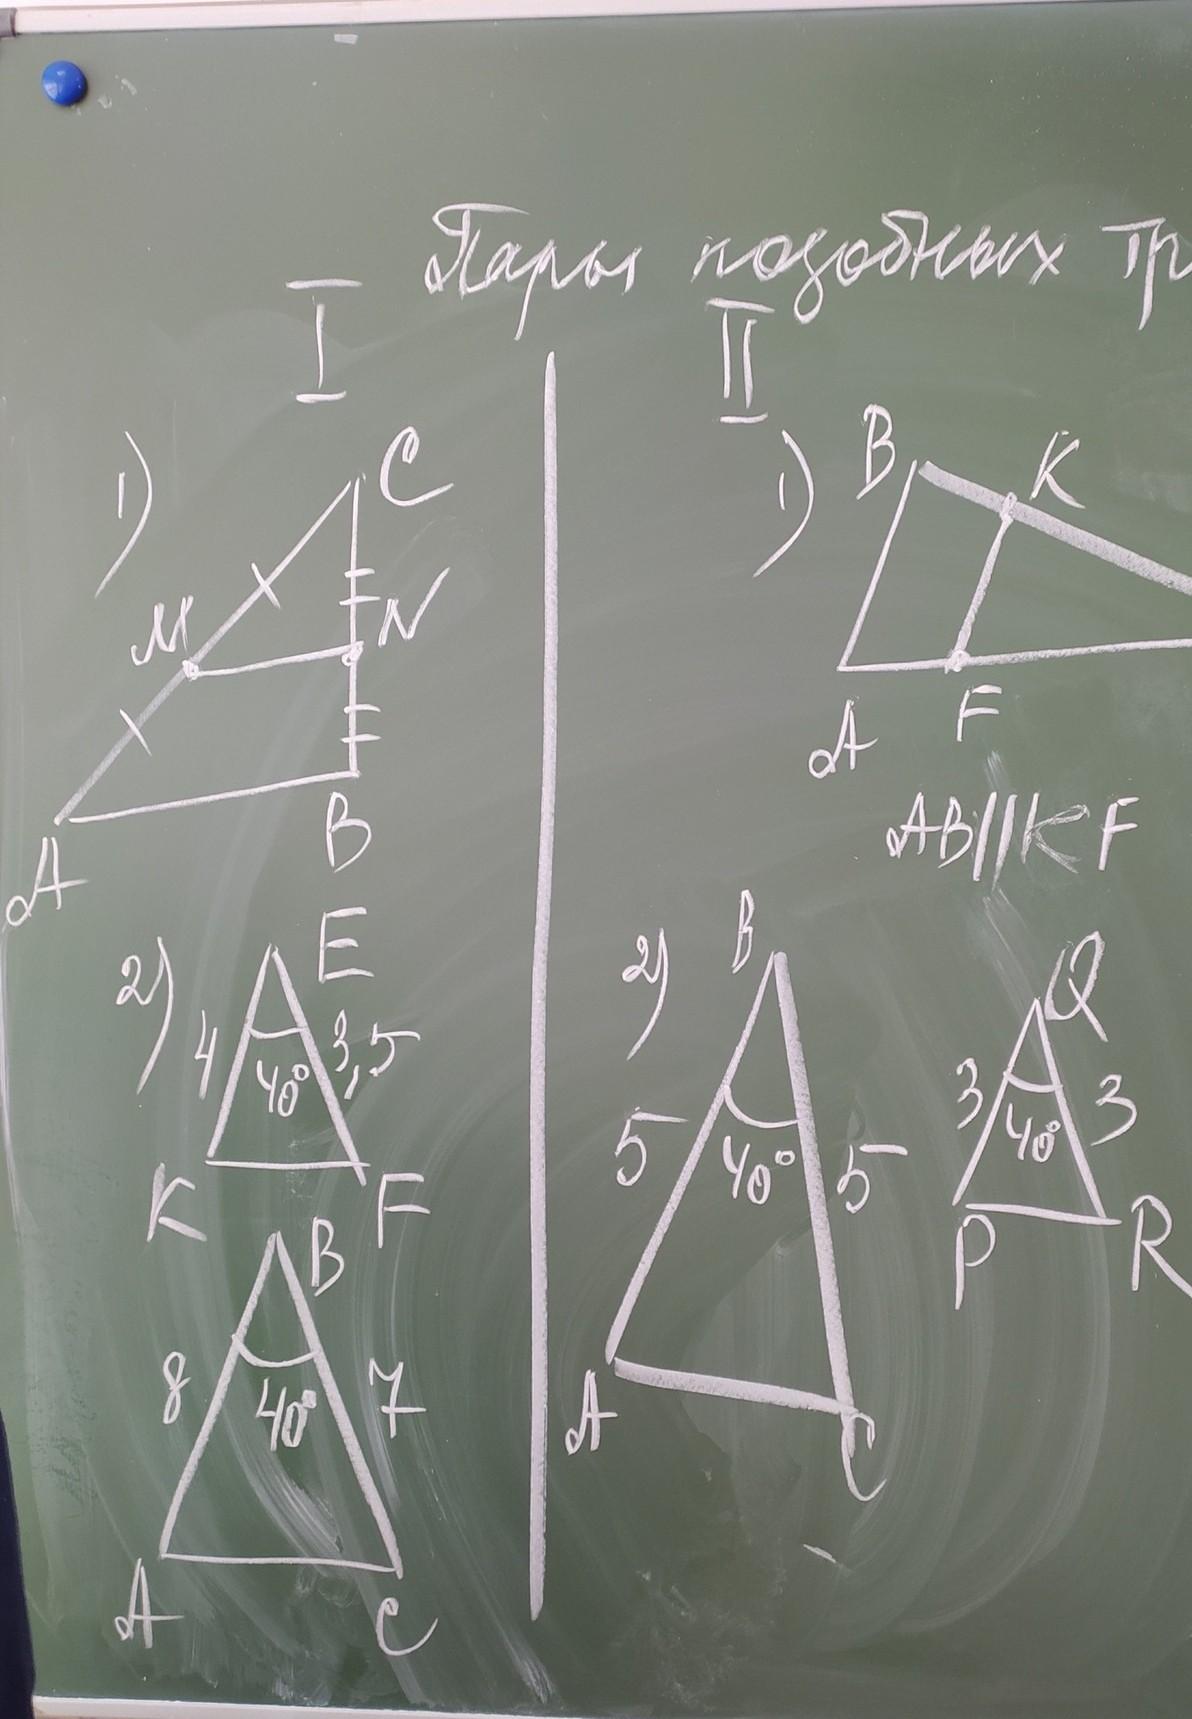 Пары подобных тр
I
II
1)
C
M
N
A
B
1)
B
K
A
F
AB||KF
2)
E
4
3,5
40°
K
F
B
8
7
40°
A
C
2)
B
5
5
40°
A
C
Q
3
3
40°
P
R